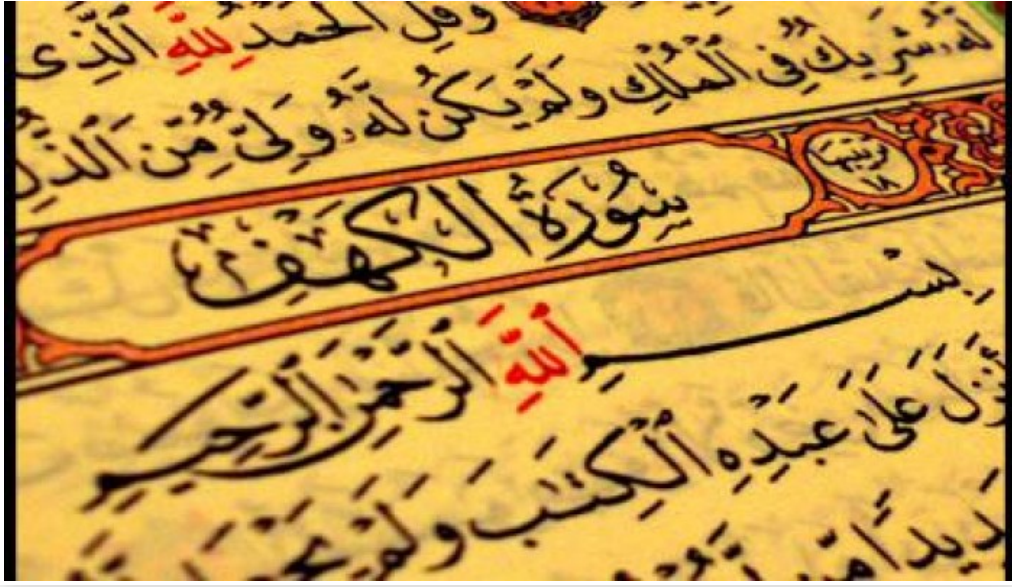 وَقُلِ ٱلْحَمْدُ لِلَّهِ ٱلَّذِى
لَّهُۥ شَرِيكٌ فِى ٱلْمُلْكِ وَلَمْ يَكُن لَّهُۥ وَلِىٌّ مِّنَ ٱلذُّلِّ
تَرْتِيبُهَا ١٨
سُورَةُ الكَهْفِ
بِسْمِ ٱللَّهِ ٱلرَّحْمَٰنِ ٱلرَّحِيمِ
عَلَىٰ عَبْدِهِ ٱلْكِتَٰبَ وَلَمْ